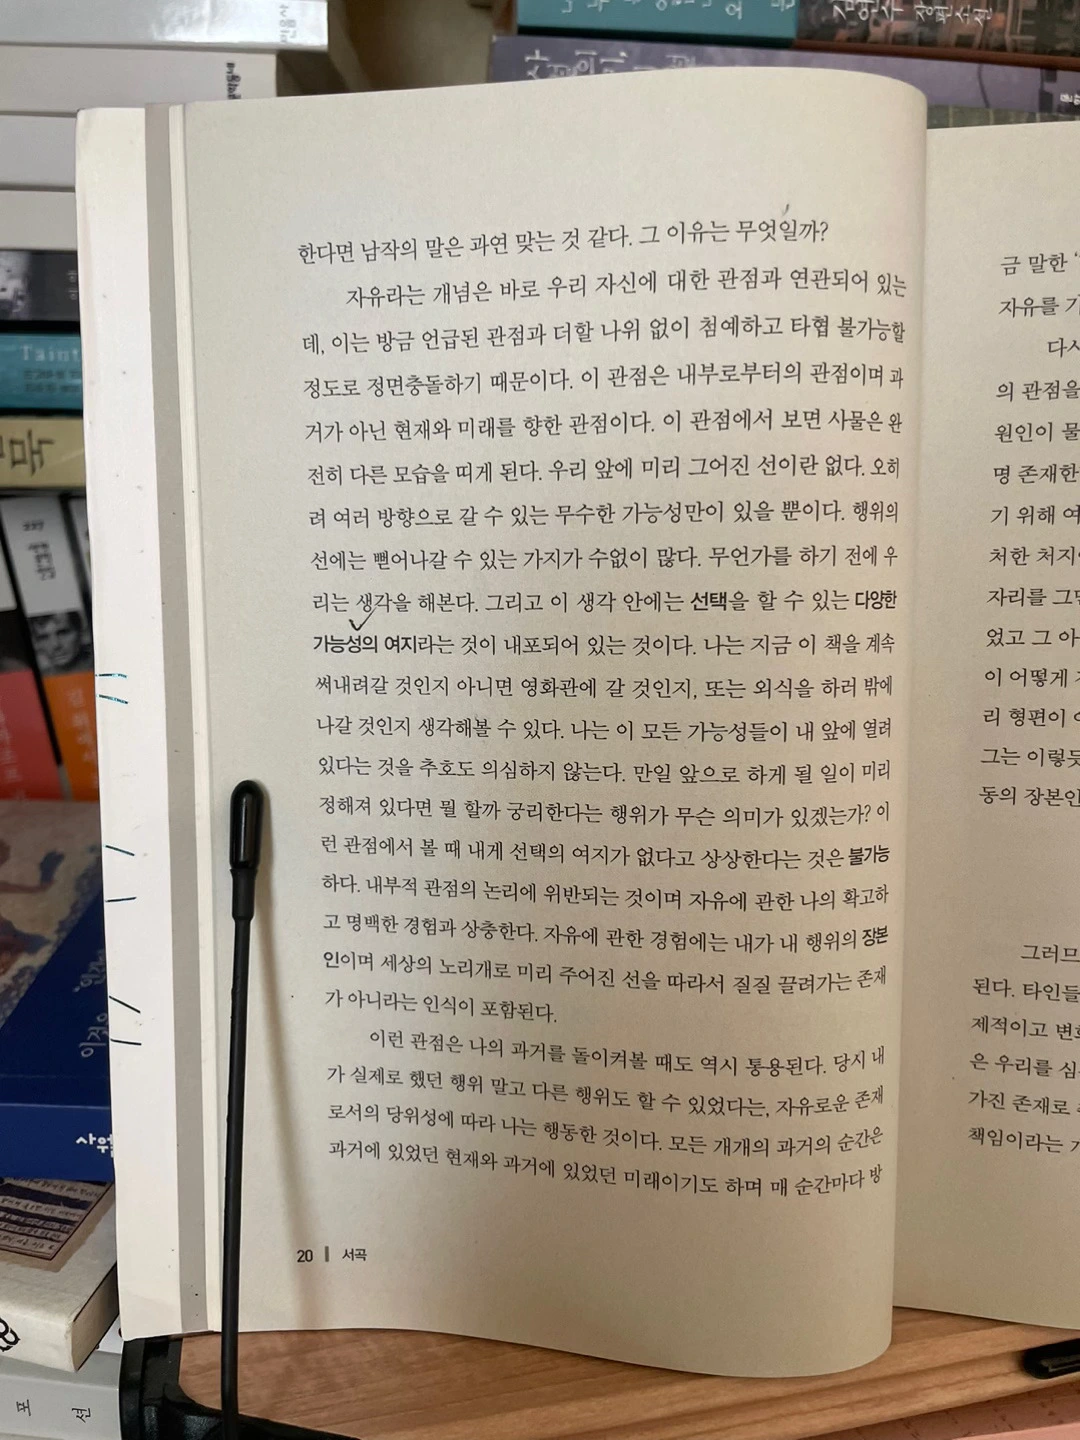 한다면 남작의 말은 과연 맞는 것 같다. 그 이유는 무엇일까?
자유라는 개념은 바로 우리 자신에 대한 관점과 연관되어 있는
데, 이는 방금 언급된 관점과 더할 나위 없이 첨예하고 타협 불가능할
정도로 정면충돌하기 때문이다. 이 관점은 내부로부터의 관점이며 과
거가 아닌 현재와 미래를 향한 관점이다. 이 관점에서 보면 사물은 완
전히 다른 모습을 띠게 된다. 우리 앞에 미리 그어진 선이란 없다. 오히
려 여러 방향으로 갈 수 있는 무수한 가능성만이 있을 뿐이다. 행위의
선에는 뻗어나갈 수 있는 가지가 수없이 많다. 무언가를 하기 전에 우
리는 생각을 해본다. 그리고 이 생각 안에는 선택을 할 수 있는 다양한
가능성의 여지라는 것이 내포되어 있는 것이다. 나는 지금 이 책을 계속
써내려갈 것인지 아니면 영화관에 갈 것인지, 또는 외식을 하러 밖에
나갈 것인지 생각해볼 수 있다. 나는 이 모든 가능성들이 내 앞에 열려
있다는 것을 추호도 의심하지 않는다. 만일 앞으로 하게 될 일이 미리
정해져 있다면 뭘 할까 궁리한다는 행위가 무슨 의미가 있겠는가? 이
런 관점에서 볼 때 내게 선택의 여지가 없다고 상상한다는 것은 불가능
하다. 내부적 관점의 논리에 위반되는 것이며 자유에 관한 나의 확고하
고 명백한 경험과 상충한다. 자유에 관한 경험에는 내가 내 행위의 장본
인이며 세상의 노리개로 미리 주어진 선을 따라서 질질 끌려가는 존재
가 아니라는 인식이 포함된다.
이런 관점은 나의 과거를 돌이켜볼 때도 역시 통용된다. 당시 내
가 실제로 했던 행위 말고 다른 행위도 할 수 있었다는, 자유로운 존재
로서의 당위성에 따라 나는 행동한 것이다. 모든 개개의 과거의 순간은
과거에 있었던 현재와 과거에 있었던 미래이기도 하며 매 순간마다 방
20 서곡
금 말한
자유를
다시
의 관점을
원인이
명 존재한
기 위해
처한
자리를
었고 그
이 어떻게
리 형편이
그는 이렇듯
동의 장본인
그러므
된다. 타인들
제적이고
은 우리를
가진 존재로
책임이라는
김연수 장편소설
민음사
Taint
포
션